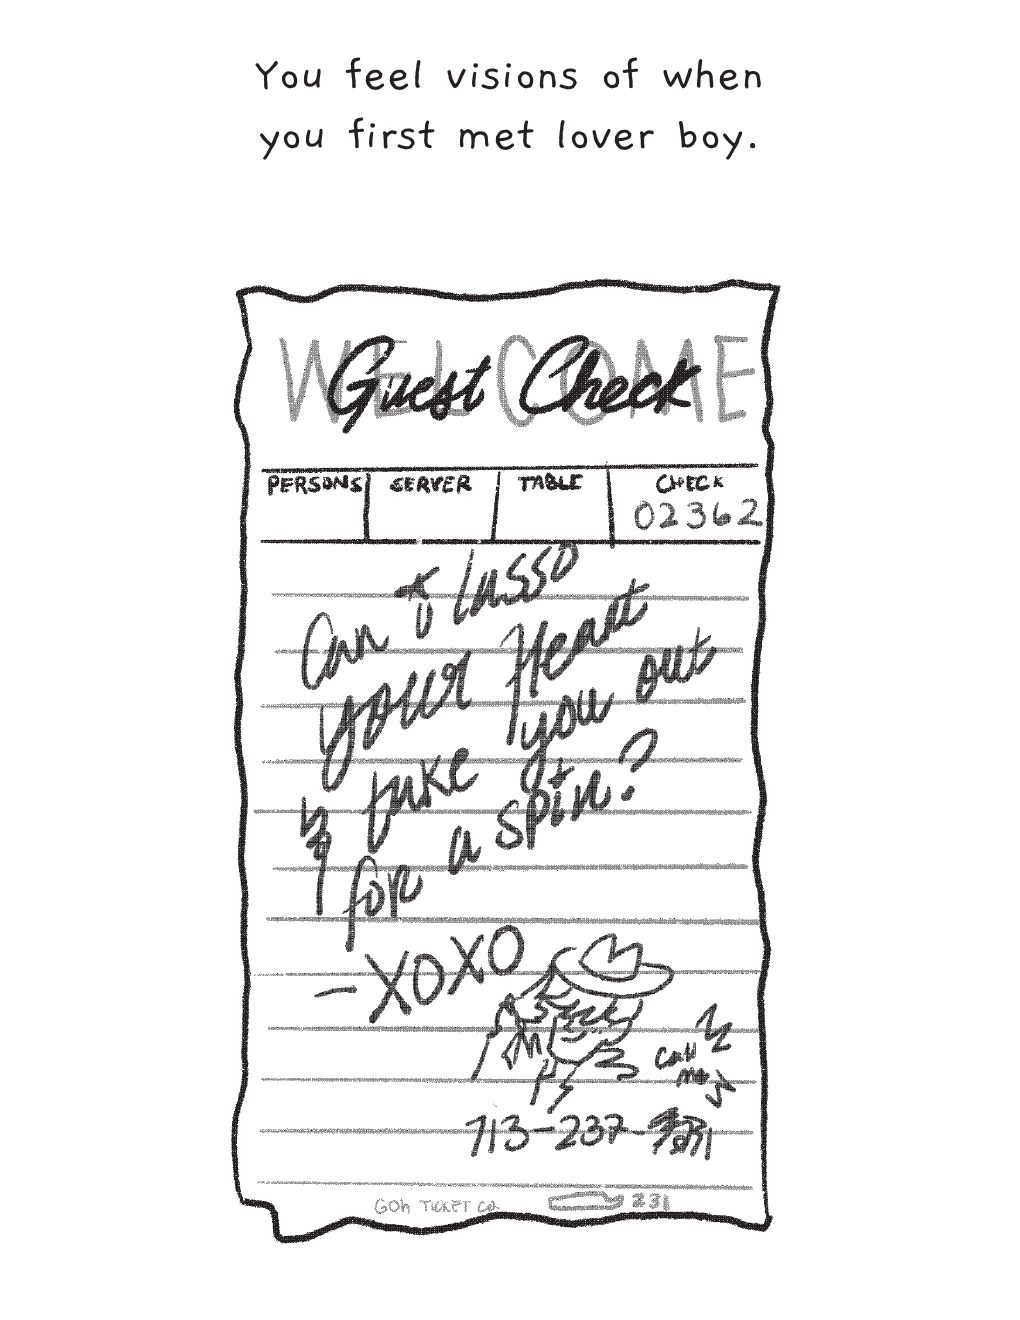 You feel visions of when
you first met lover boy.
WELCOME
Guest Check
PERSONS SERVER TABLE CHECK
02362
Can I lasso
your Heart
& take you out
for a spin?
- XOXO
Call
me
713-237-
GOh TICKET CO. 231